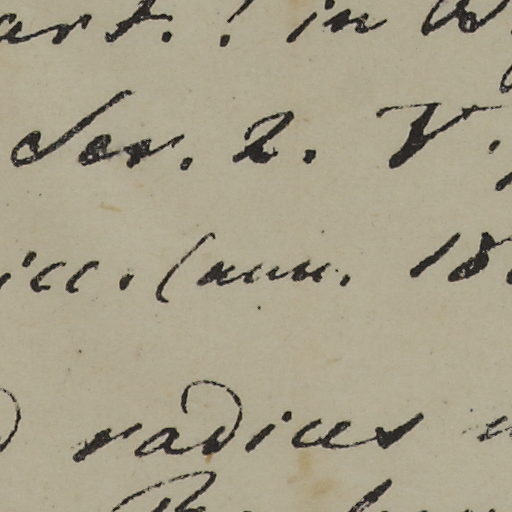 art. ! in
Ser. 2. V.
icc. (ann. 18
radices